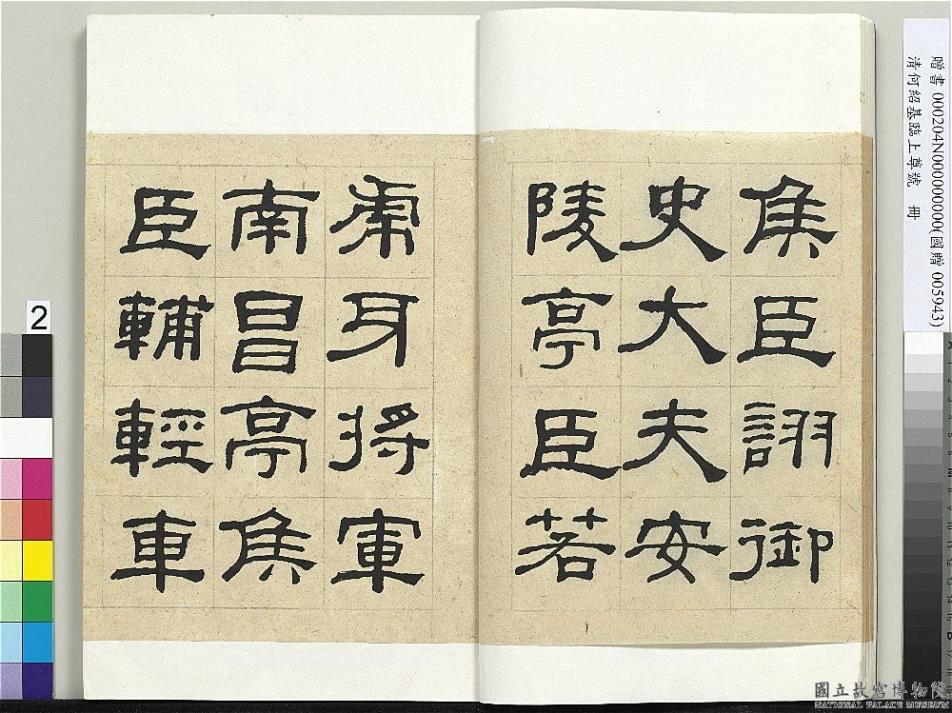 侯臣詡御
史大夫安
陵亭臣若
虎牙將軍
南昌亭侯
臣輔輕車
贈書 000204N000000000(國贈 005943)
清何紹基臨上尊號 冊
2
國立故宮博物院
NATIONAL PALACE MUSEUM